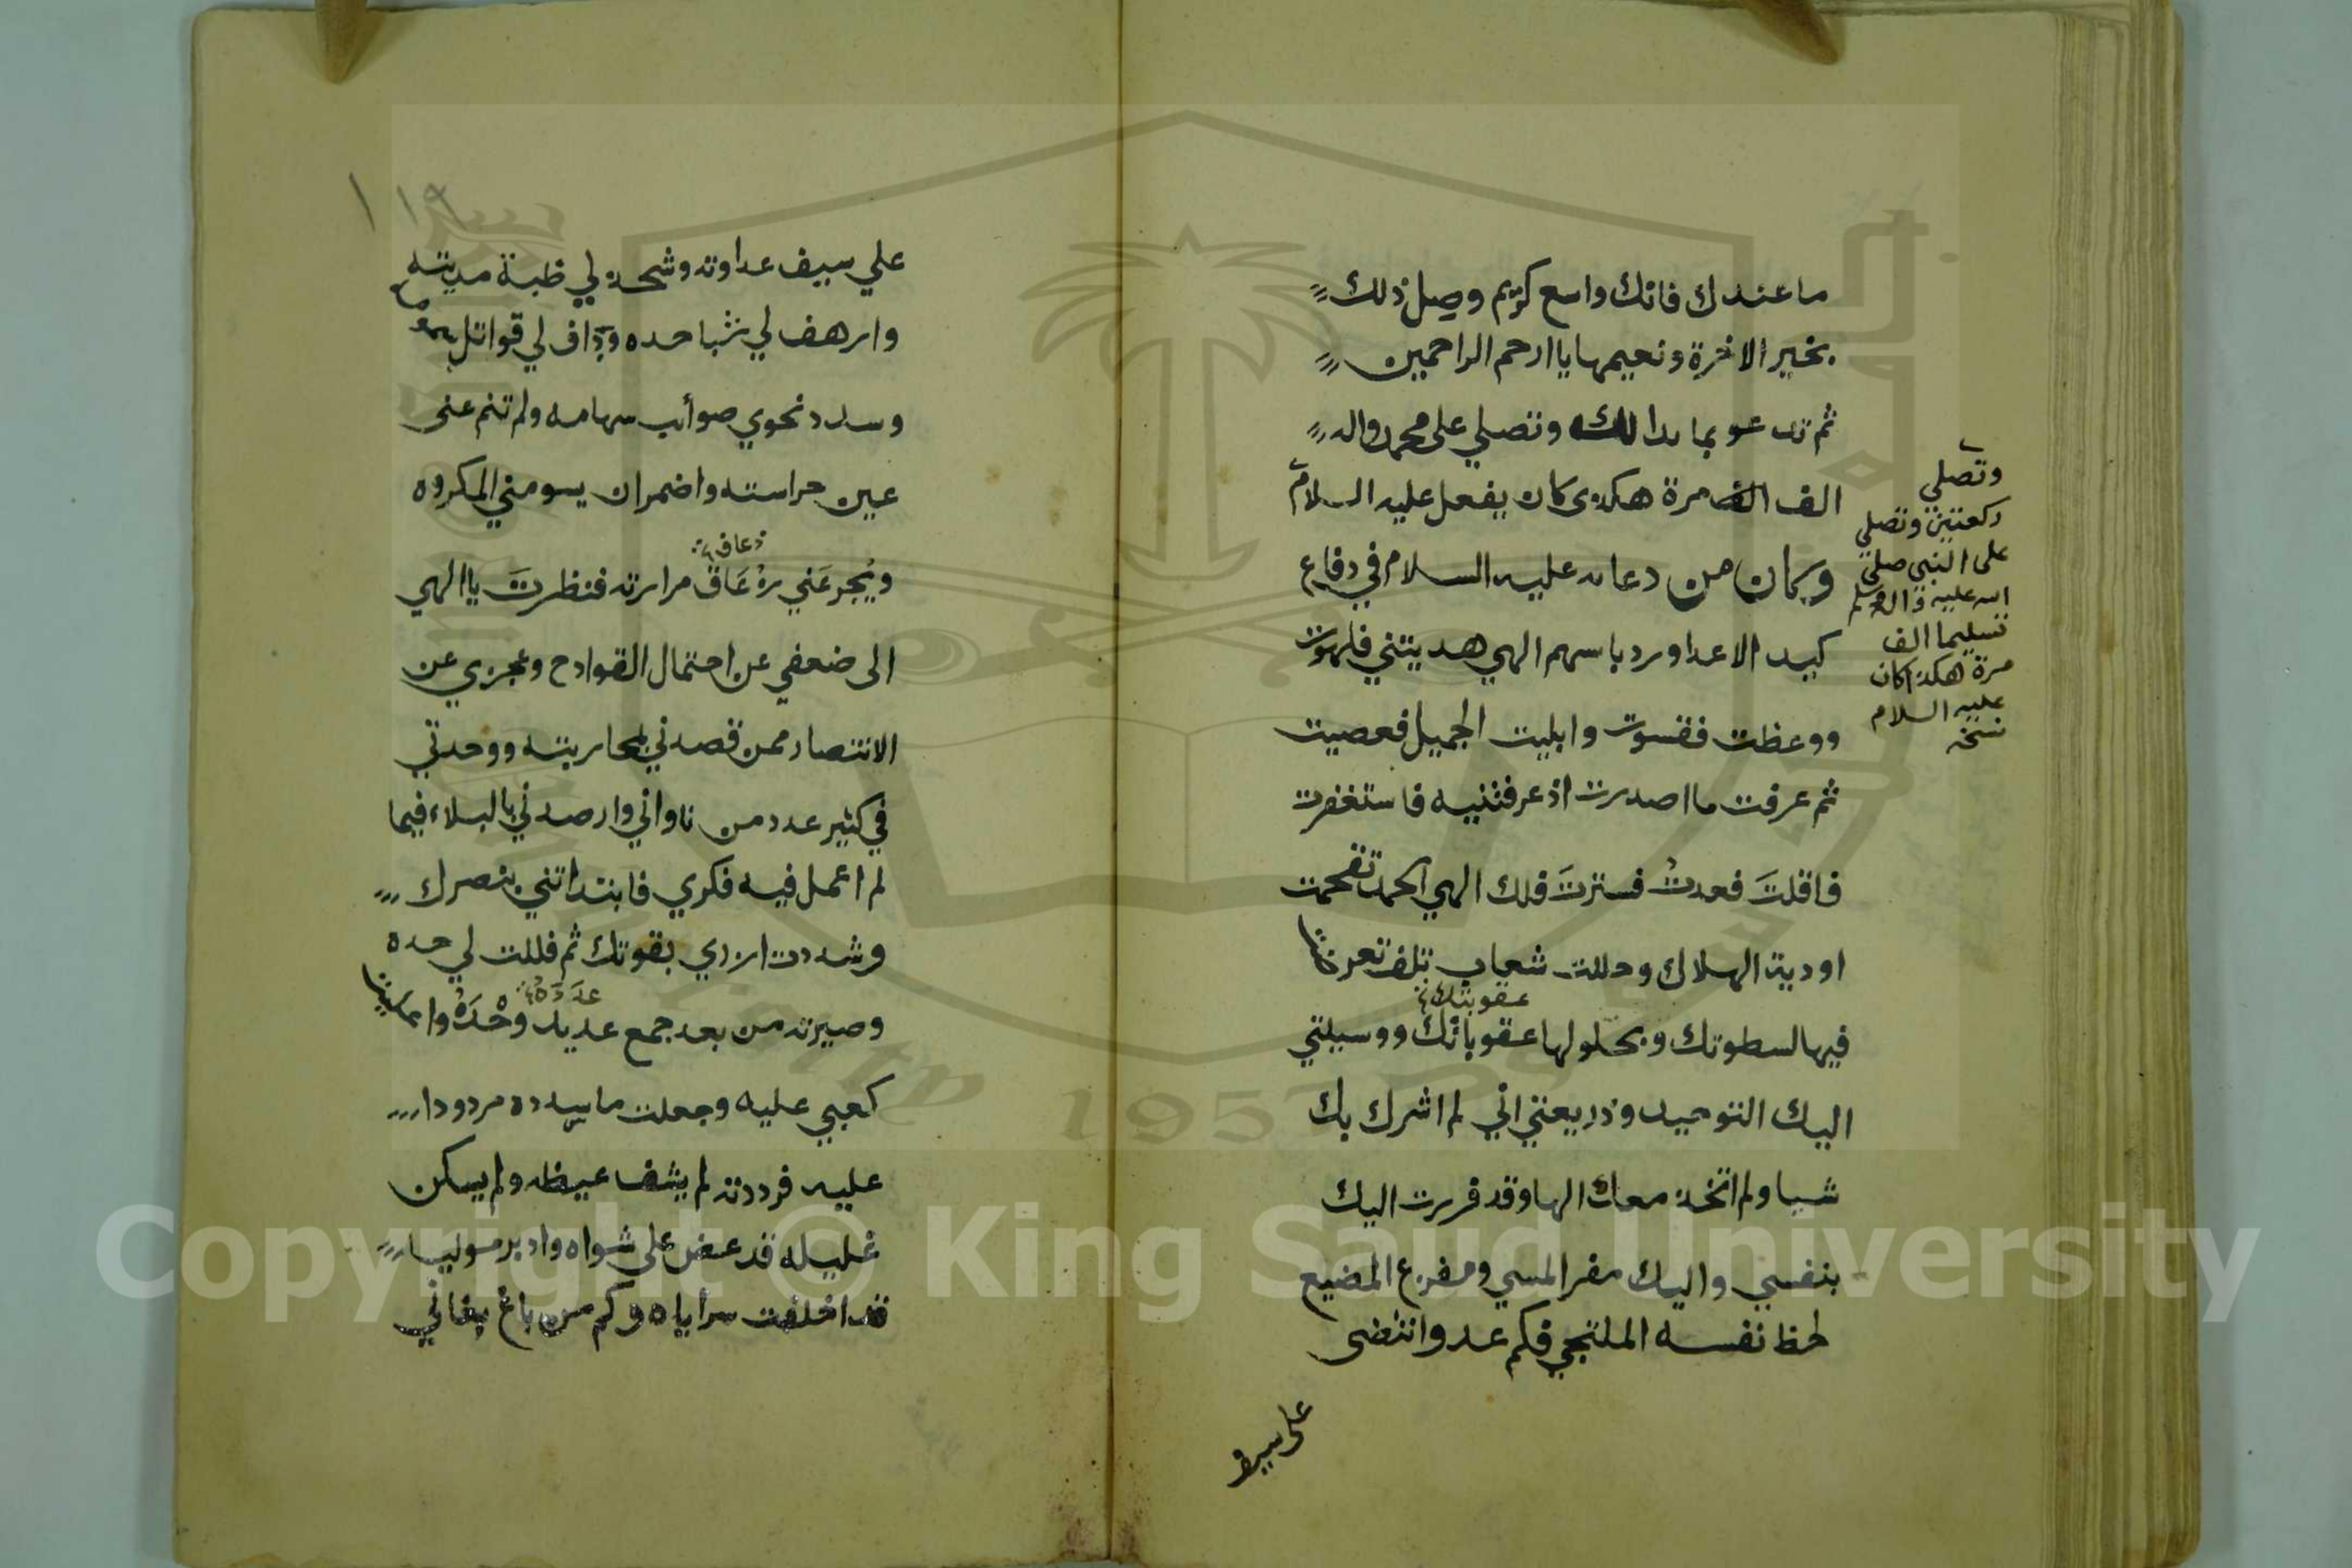 ما عندك فانك واسع كريم وصل ذلك
بخير الاخرة ونعيمها يا ارحم الراحمين
ثم تدعو بما بدا لك وتصلي على محمد واله
الف الف مرة هكذى كان يفعل عليه السلام
وكان من دعائه عليه السلام في دفاع
كيد الاعدا ورد باسهم الهي هديتني فلهوت
ووعظت فقسوت وابليت الجميل فعصيت
ثم عرفت ما اصدرت اذ عرفتنيه فاستغفرت
فاقلتَ فعدتُ فسترتَ فلك الهي الحمد تقحمت
اودية الهلاك وحللت شعاب تلف تعرضت
عقوبتك
فيها لسطوتك وبحلولها عقوباتك ووسيلتي
اليك التوحيد وذريعتي اني لم اشرك بك
شيا ولم اتخذ معك الها وقد فررت اليك
بنفسي واليك مفر المسي ومفزع المضيع
لحظ نفسه الملتجي فكم عدو انتضى
على سيف
وتصلي
ركعتين وتصلي
على النبي صلى
الله عليه واله وسلم
تسليما الف
مرة هكذا كان
عليه السلام
نسخه
١١٩
علي سيف عداوته وشحذ لي ظبة مديته
وارهف لي شبا حده وداف لي قواتل سمومه
وسدد نحوي صوائب سهامه ولم تنم عني
عين حراسته واضمر ان يسومني المكروه
ذعاف
ويُجرعَني زُعَاق مرارته فنظرتَ يا الهي
الى ضعفي عن احتمال القوادح وعجزي عن
الانتصار ممن قصدني بمحاربته ووحدتي
في كثير عدد من ناواني وارصد لي بالبلاء فيما
لم اعمل فيه فكري فابتداتني بنصرك
وشددت ازري بقوتك ثم فللت لي حده
عَدَدَهُ
وصيرته من بعد جمع عديد وحْدَهُ واعليت
كعبي عليه وجعلت ما سدده مردودا
عليه فرددته لم يشف غيظه ولم يسكن
غليله قد عض على شواه وادبر موليا
قد اخلفت سراياه وكم من باغ بغاني
Copyright © King Saud University
1957